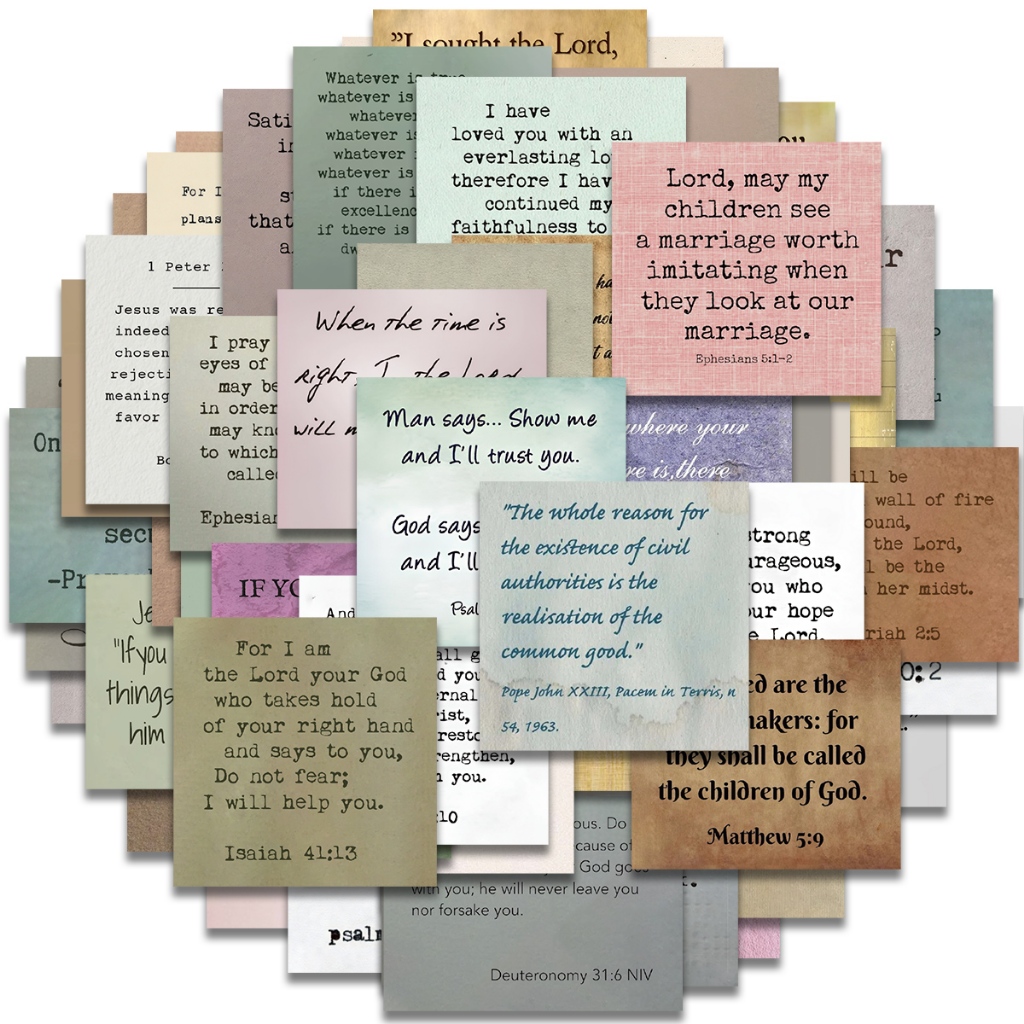 "I sought the Lord,
Whatever is true,
whatever is
whatever
whatever is
whatever i
whatever is
if there i
excellenc
if there is
dw
I have
loved you with an
everlasting lo
therefore I hav
continued my
faithfulness to
ou
Sati
in
su
that
a
For I
plans
Lord, may my
children see
a marriage worth
imitating when
they look at our
marriage.
Ephesians 5:1-2
r
ha
not
t a
u
1 Peter
Jesus was re
indeed
chosen
rejecti
meaning
favor
Bo
I pray
eyes of
may be
in order
may kno
to which
calle
Ephesian
When the time is
right, I, the Lord
will m
Man says... Show me
and I'll trust you.
God says
and I'll
Psal
where your
re is, there
"The whole reason for
the existence of civil
authorities is the
realisation of the
common good."
Pope John XXIII, Pacem in Terris, n
54, 1963.
strong
urageous,
ou who
ur hope
e Lord.
ill be
wall of fire
ound,
the Lord,
l be the
her midst.
riah 2:5
0:2
."
On
secu
-Pr
IF YO
Je
"If you
things
him
And
all g
d you
rnal
ist,
resto
rengthen,
n you.
:10
For I am
the Lord your God
who takes hold
of your right hand
and says to you,
Do not fear;
I will help you.
Isaiah 41:13
ed are the
makers: for
they shall be called
the children of God.
Matthew 5:9
ous. Do
cause of
God goes
with you; he will never leave you
nor forsake you.
Deuteronomy 31:6 NIV
psalm